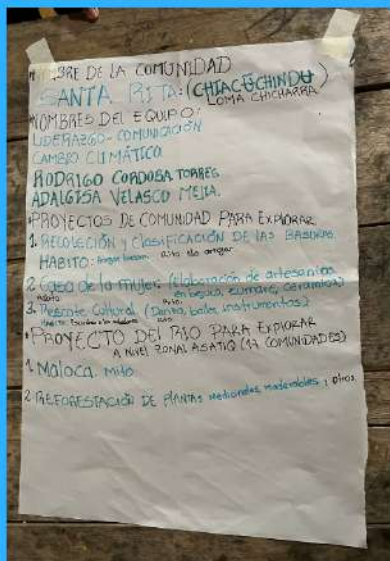 NOMBRE DE LA COMUNIDAD
SANTA RITA: (CHIACÜCHINDU)
LOMA CHICHARRA
NOMBRES DEL EQUIPO:
LIDERAZGO - COMUNICACIÓN
CAMBIO CLIMÁTICO
RODRIGO CORDOBA TORRES
ADALGISA VELASCO MEJIA.
PROYECTOS DE COMUNIDAD PARA EXPLORAR
1. RECOLECIÓN y Clasificación DE LAS BASURAS.
HABITO: Rito de arrojar
2 Casa de la mujer (Elaboración de artesanías
en bejuco, zumare, ceramica)
3. Rescate Cultural (Danza, bailes, instrumentos)
PROYECTO DEL RIO PARA EXPLORAR
A NIVEL ZONAL ASATIQ (17 COMUNIDADES)
1 Maloca. Mito
2 REFORESTACIÓN DE PLANTAS Medicinales, maderables y Otros.